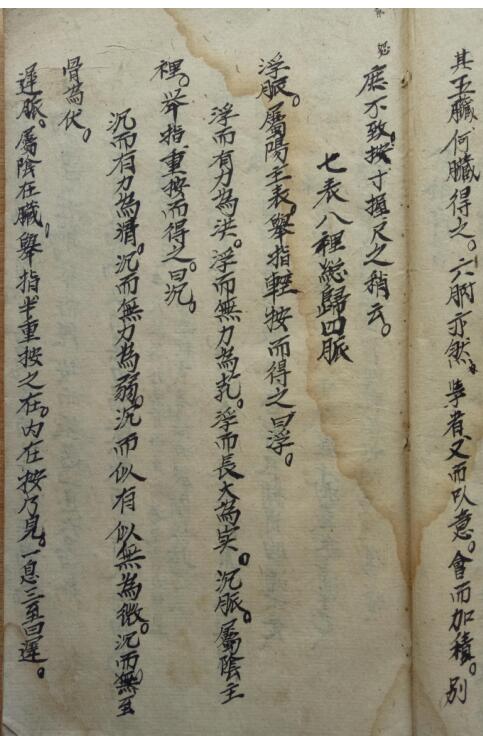 其五臟何臟得之。六腑亦然。學者又而以意。會而加積。別
庶不致按寸握尺之稍云。
七表八裡総歸四脈
浮脈。屬陽主表。舉指輕按而得之曰浮。
浮而有力為洪。浮而無力為芤。浮而長大為实。沉脈。屬陰主
裡。举指重按而得之曰沉。
沉而有力為滑。沉而無力為弱。沉而似有似無為微。沉而無至
骨為伏。
遲脈。屬陰在臟。舉指半重按之在。內在按乃見。一息三至曰遲。